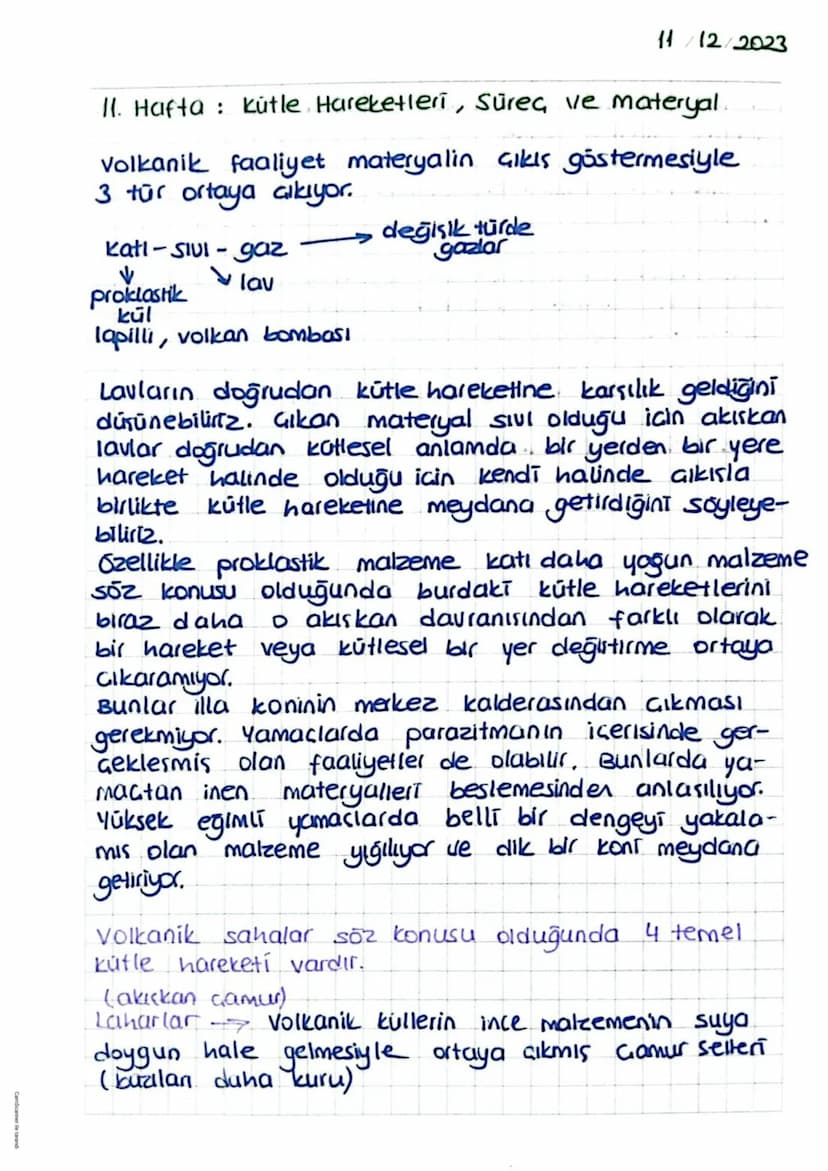 11/12/2023
11. Hafta : Kütle Hareketleri, Süreç ve Materyal.
Volkanik faaliyet materyalin çıkış göstermesiyle
3 tür ortaya çıkıyor.
katı-sıvı-gaz → değişik türde
gazlar
↓ ↘ lav
proklastik
kül
lapilli, volkan bombası
Lavların doğrudan kütle hareketine karşılık geldiğini
düşünebiliriz. Çıkan materyal sıvı olduğu için akışkan
lavlar doğrudan kütlesel anlamda bir yerden bir yere
hareket halinde olduğu için kendi halinde çıkışla
birlikte kütle hareketine meydana getirdiğini söyleye-
biliriz.
Özellikle proklastik malzeme katı daha yoğun malzeme
söz konusu olduğunda burdaki kütle hareketlerini
biraz daha o akışkan davranışından farklı olarak
bir hareket veya kütlesel bir yer değiştirme ortaya
çıkaramıyor.
Bunlar illa koninin merkez kalderasından çıkması
gerekmiyor. Yamaçlarda parazitmanın içerisinde ger-
çekleşmiş olan faaliyetler de olabilir. Bunlarda ya-
maçtan inen materyalleri beslemesinden anlaşılıyor.
Yüksek eğimli yamaçlarda belli bir dengeyi yakala-
mış olan malzeme yığılıyor ve dik bir koni meydana
getiriyor.
Volkanik sahalar söz konusu olduğunda 4 temel
kütle hareketi vardır.
(akışkan çamur)
Laharlar --> Volkanik küllerin ince malzemenin suya
doygun hale gelmesiyle ortaya çıkmış çamur selleri
(bazıları daha kuru)
CamScanner ile tarandı